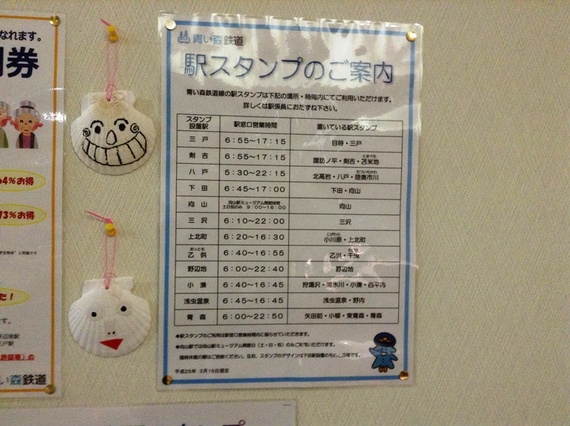 なれます。
割券
64%お得
13%お得
た！
い森鉄道
青い森鉄道
駅スタンプのご案内
青い森鉄道線の駅スタンプは下記の場所・時間内にてご利用いただけます。
詳しくは駅係員におたずね下さい。
スタンプ設置駅 駅窓口営業時間 置いている駅スタンプ
三戸 6:55～17:15 目時・三戸
剣吉 6:55～17:15 諏訪ノ平・剣吉・苫米地
八戸 5:30～22:15 北高岩・八戸・陸奥市川
下田 6:45～17:00 下田・向山
向山 向山駅ミュージアム開館時間 土日祝のみ 9:00～16:00 向山
三沢 6:10～22:00 三沢
上北町 6:20～16:30 小川原・上北町
乙供 6:40～16:55 乙供・千曳
野辺地 6:00～22:40 野辺地
小湊 6:40～16:45 狩場沢・清水川・小湊・西平内
浅虫温泉 6:45～16:45 浅虫温泉・野内
青森 6:00～22:50 矢田前・小柳・東青森・青森
●駅スタンプのご利用は駅窓口営業時間内に限らせていただきます。
平成25年 3月16日現在